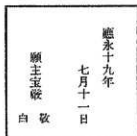 應永十九年
七月十一日
願主宝䂓
敬白